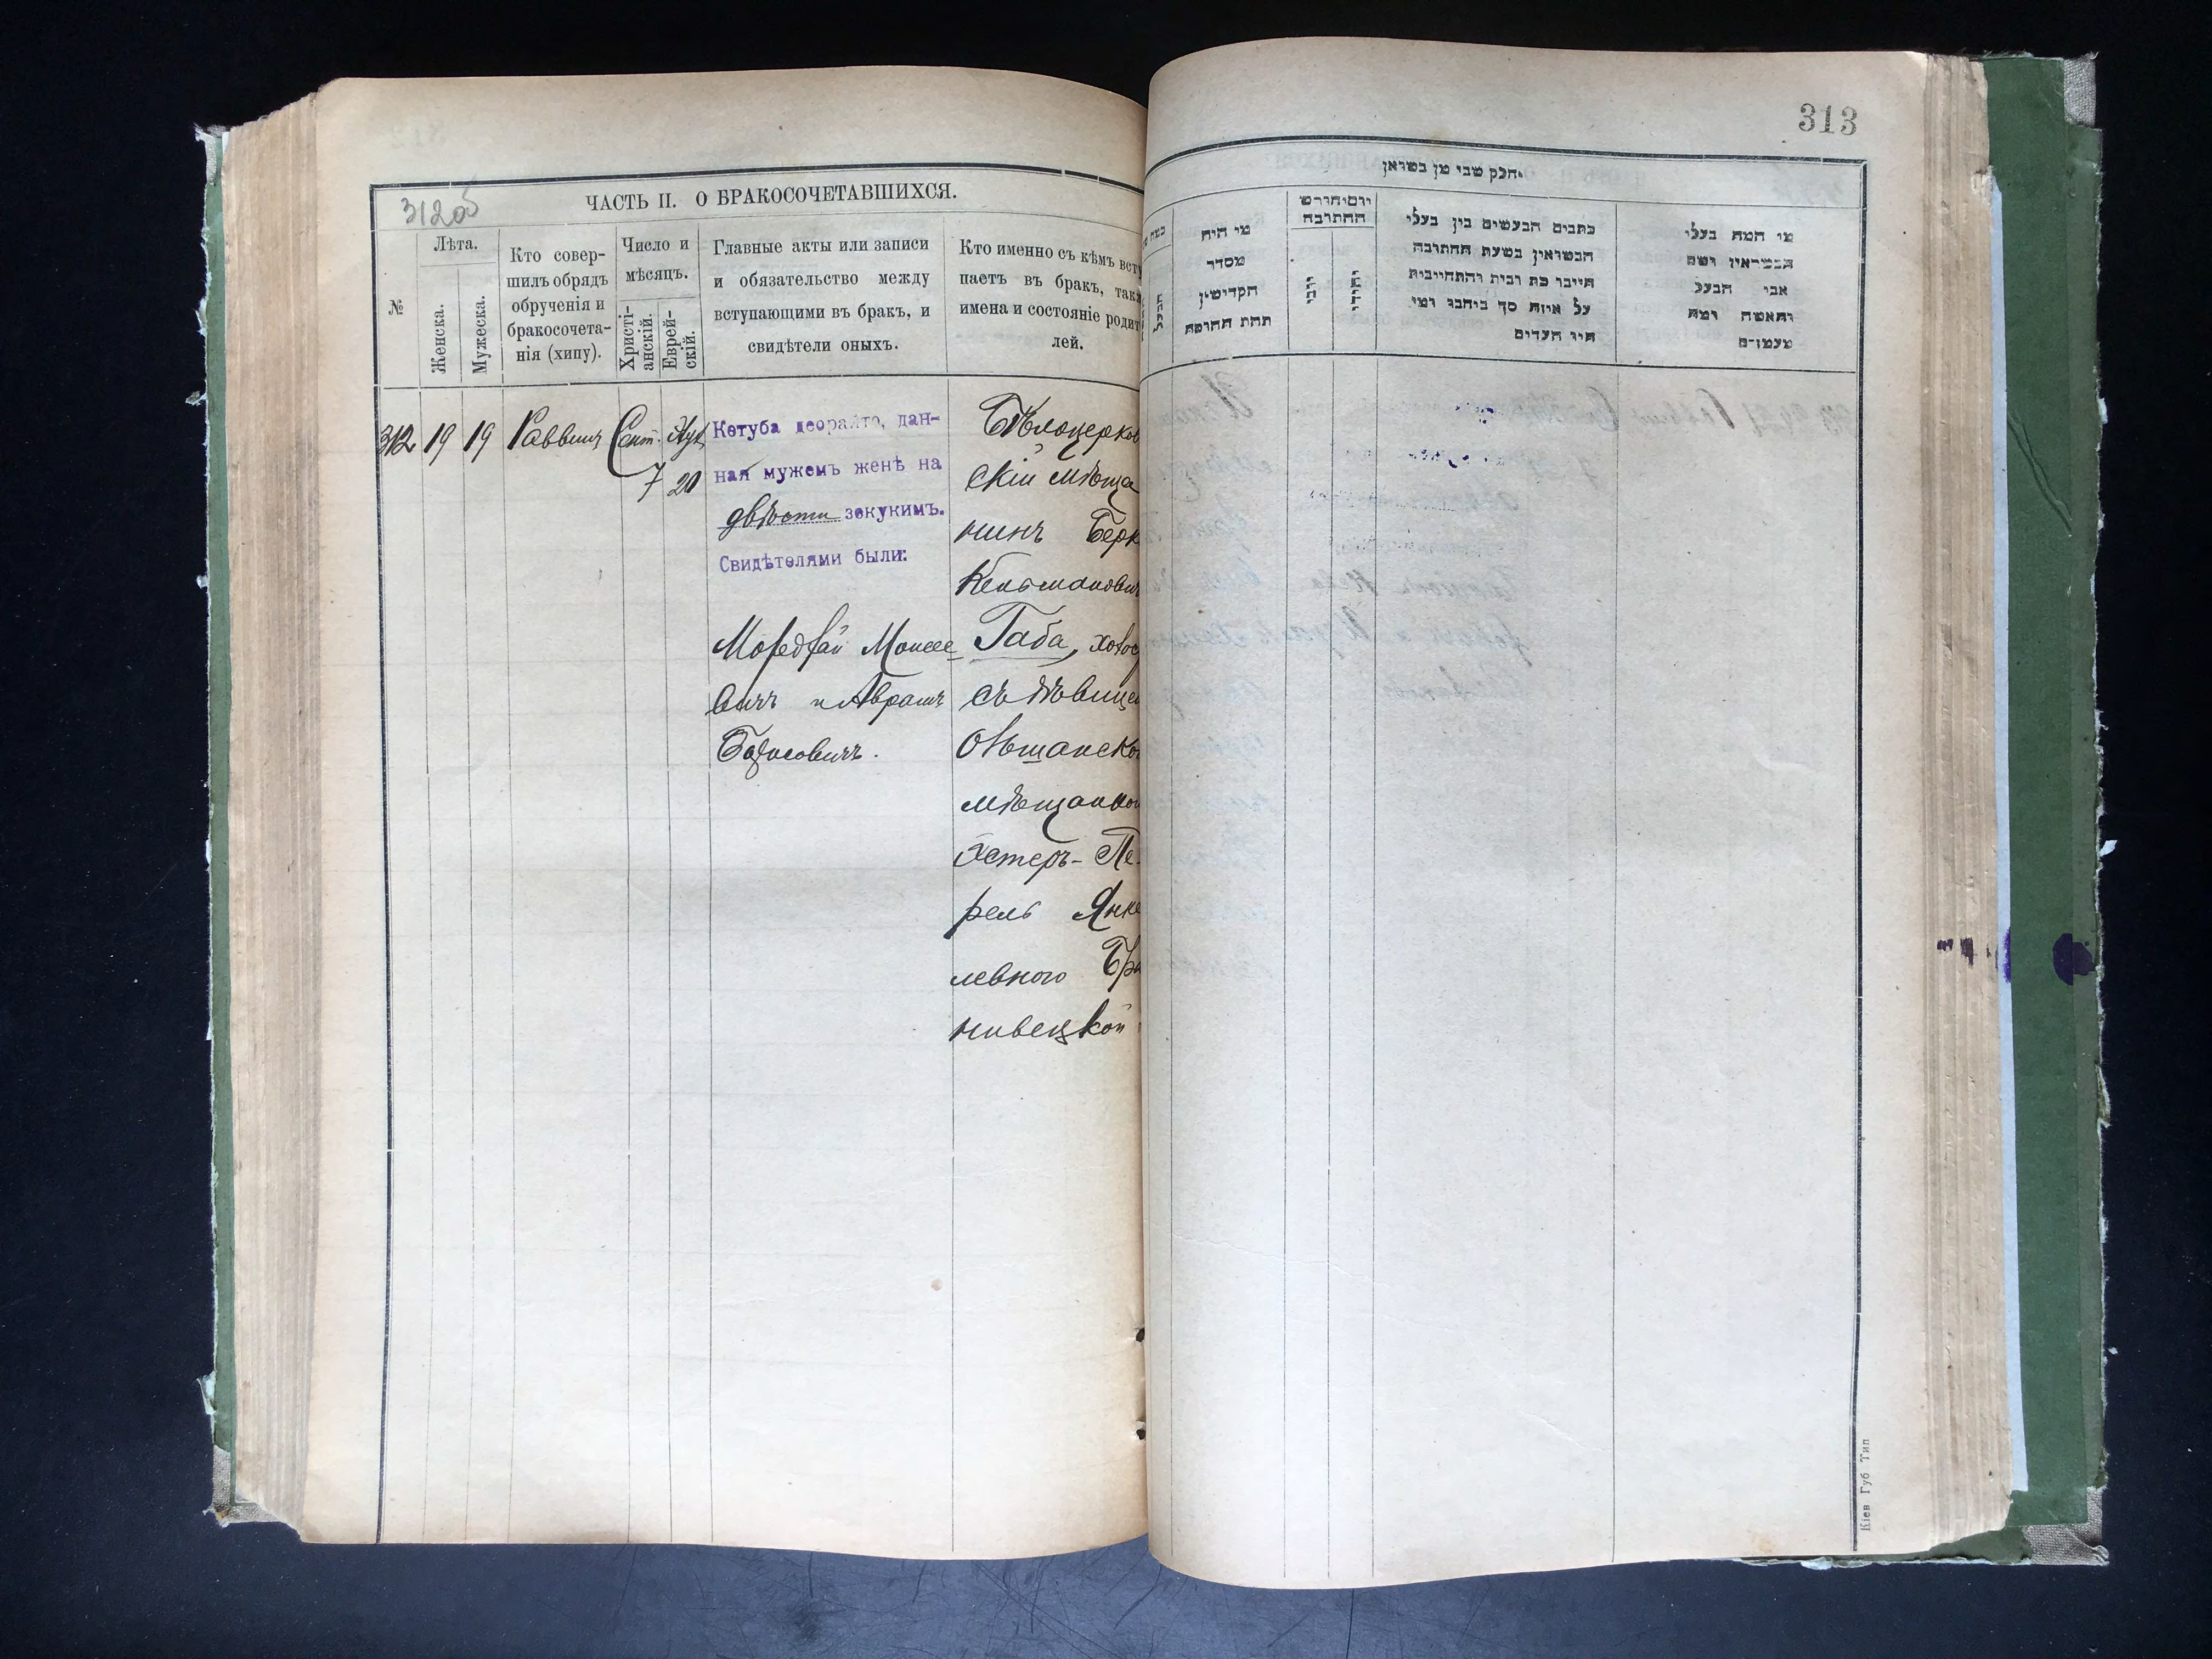 312об
ЧАСТЬ II. О БРАКОСОЧЕТАВШИХСЯ.
№
Лѣта.
Женска.
Мужеска.
Кто совер-
шилъ обрядъ
обрученія и
бракосочета-
нія (хипу).
Число и
мѣсяцъ.
Христі-
анскій.
Еврей-
скій.
Главные акты или записи
и обязательство между
вступающими въ бракъ, и
свидѣтели оныхъ.
Кто именно съ кѣмъ всту
паетъ въ бракъ, так
имена и состояніе родит
лей.
312
19
19
Раввинъ
Сент.
7
20
Кетуба деорайто, дан-
ная мужемъ женѣ на
двѣсти зекукимъ.
Свидѣтелями были:
Мордхай Моисее
вичъ и Аврамъ
Борисовичъ.
Бѣлоцерков
скій мѣща
нинъ Берк
Кельманович
Габа, холос
съ дѣвицей
Ольшанско
мѣщанкой
Эстеръ-Пе-
рель Янке
левного Бра
нивецкой
313
חלק שני מן נשואין
מי היה
מסדר
הקדושין
תחת החופה
יום וחודש
החתונה
נוצרי
יהודי
כתבים הנעשים בין בעלי
הנשואין בשעת החתונה
חייבי כת רבית והתחייבות
על איזה סך ביחבו ומי
היו העדים
מי המה בעלי
הנשואין ושם
אבי הבעל
והאשה ומה
מעמדם
הבעל
Кіев Губ Тип